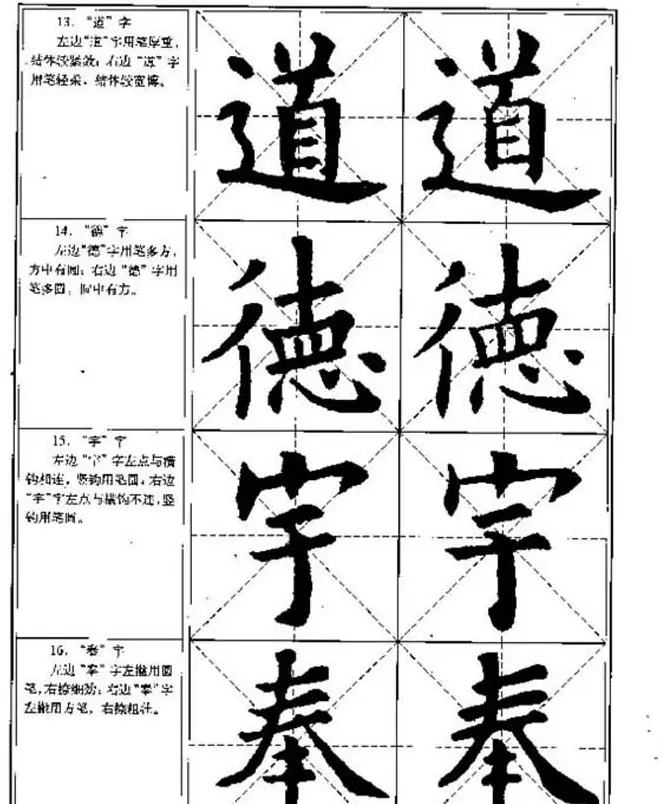 13. “道”字
左边“道”字用笔厚重,
结体较紧敛; 右边“道”字
用笔轻柔, 结体较宽博。
道 道
14. “德”字
左边“德”字用笔多方,
方中有圆; 右边“德”字用
笔多圆, 圆中有方。
德 德
15. “宇”字
左边“宇”字左点与横
钩相连, 竖钩用笔圆, 右边
“宇”字左点与横钩不连, 竖
钩用笔圆。
宇 宇
16. “奉”字
左边“奉”字左撇用圆
笔, 右捺细劲; 右边“奉”字
左撇用方笔, 右捺粗壮。
奉 奉